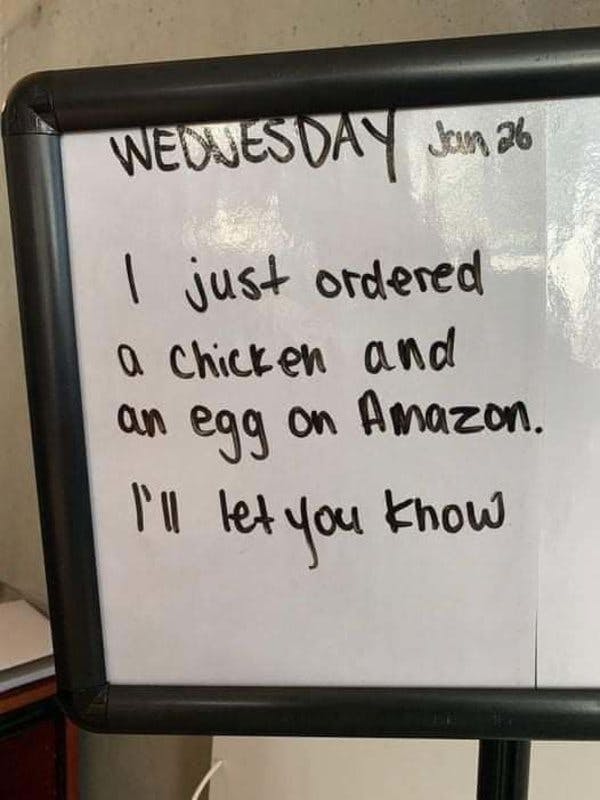 WEDNESDAY Jan 26
I just ordered
a chicken and
an egg on Amazon.
I'll let you know